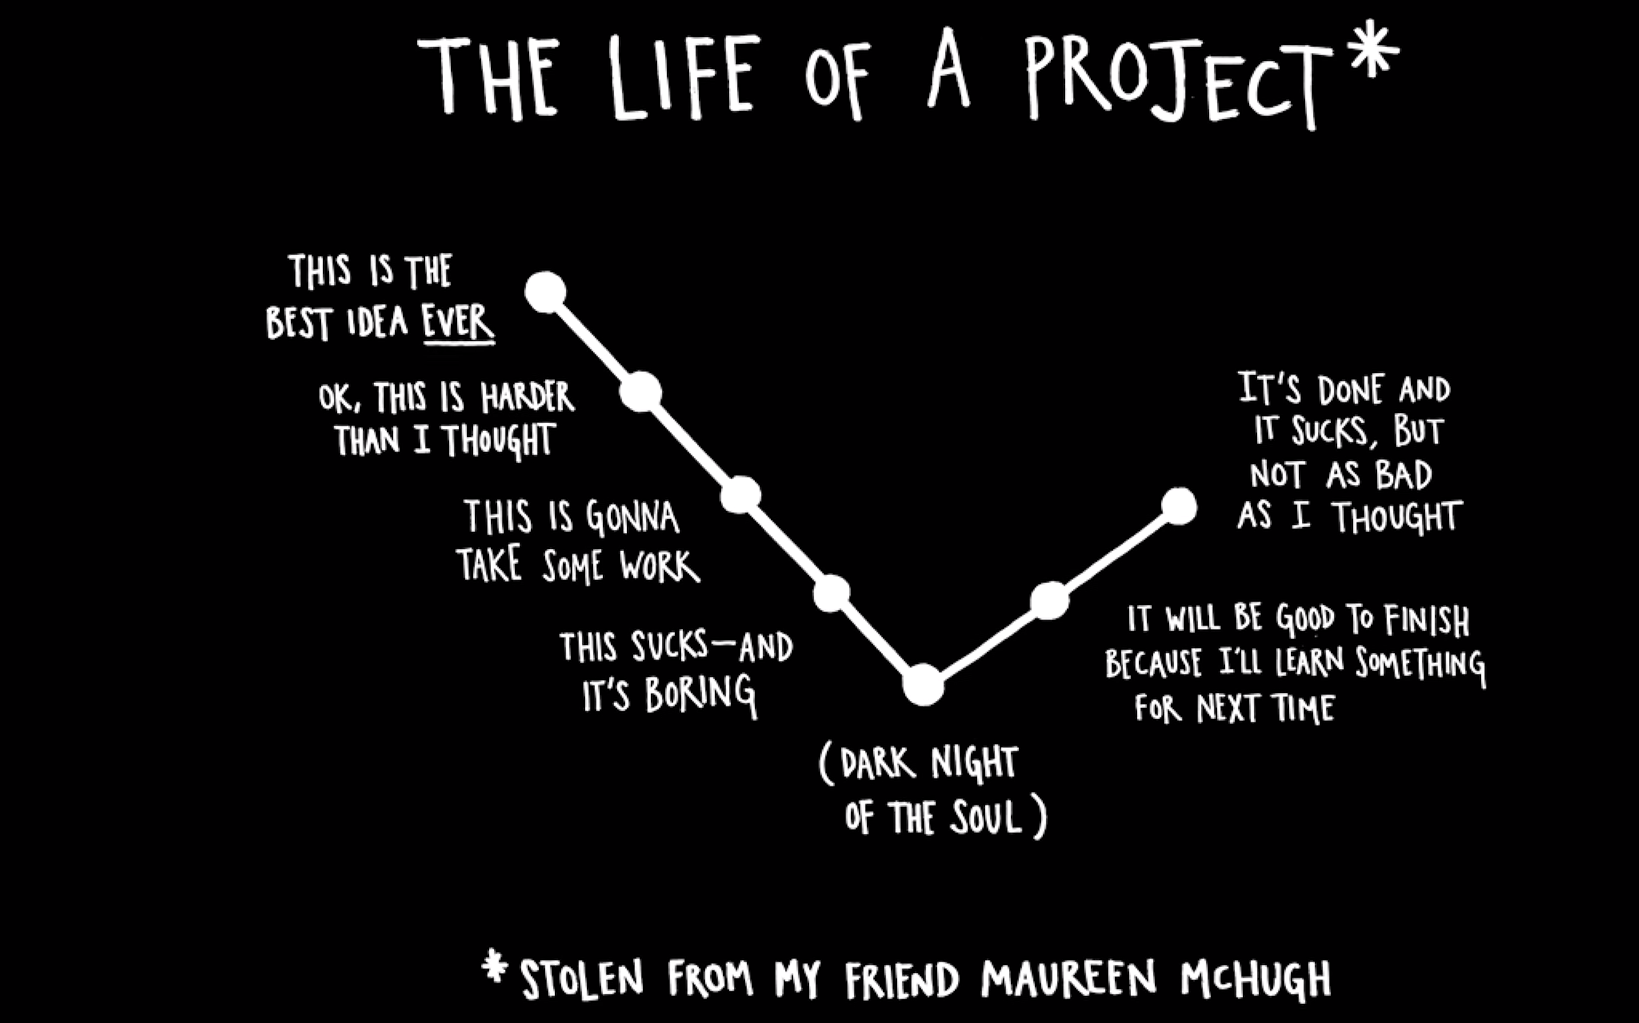 THE LIFE OF A PROJECT*
THIS IS THE
BEST IDEA EVER
OK, THIS IS HARDER
THAN I THOUGHT
THIS IS GONNA
TAKE SOME WORK
THIS SUCKS—AND
IT'S BORING
(DARK NIGHT
OF THE SOUL)
IT WILL BE GOOD TO FINISH
BECAUSE I'LL LEARN SOMETHING
FOR NEXT TIME
IT'S DONE AND
IT SUCKS, BUT
NOT AS BAD
AS I THOUGHT
*STOLEN FROM MY FRIEND MAUREEN McHUGH